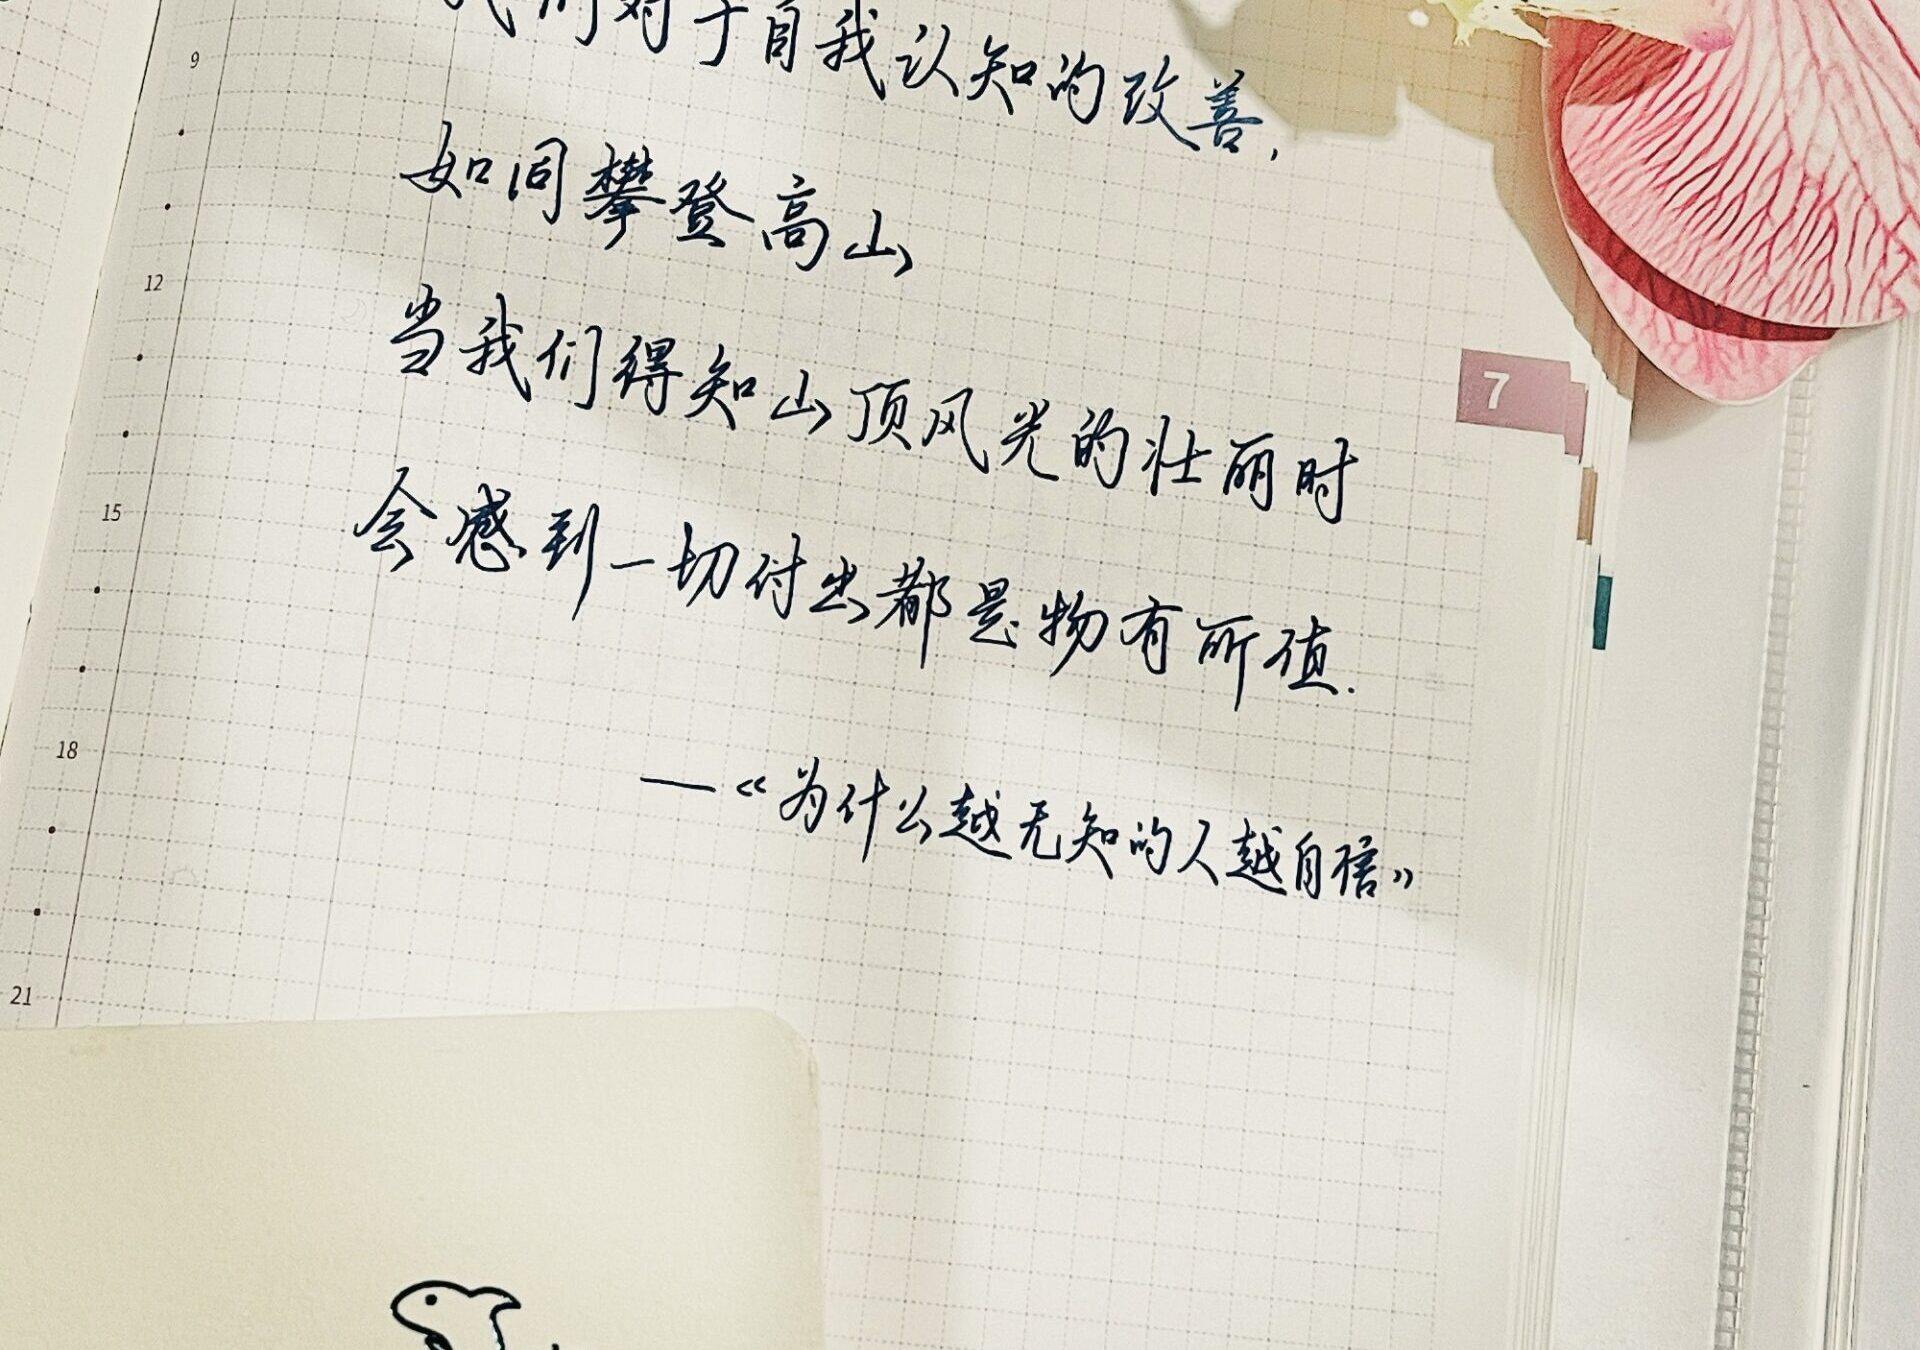 我们对于自我认知的改善,
9
如同攀登高山
12
当我们得知山顶风光的壮丽时
7
会感到一切付出都是物有所值.
15
18
—《为什么越无知的人越自信》
21